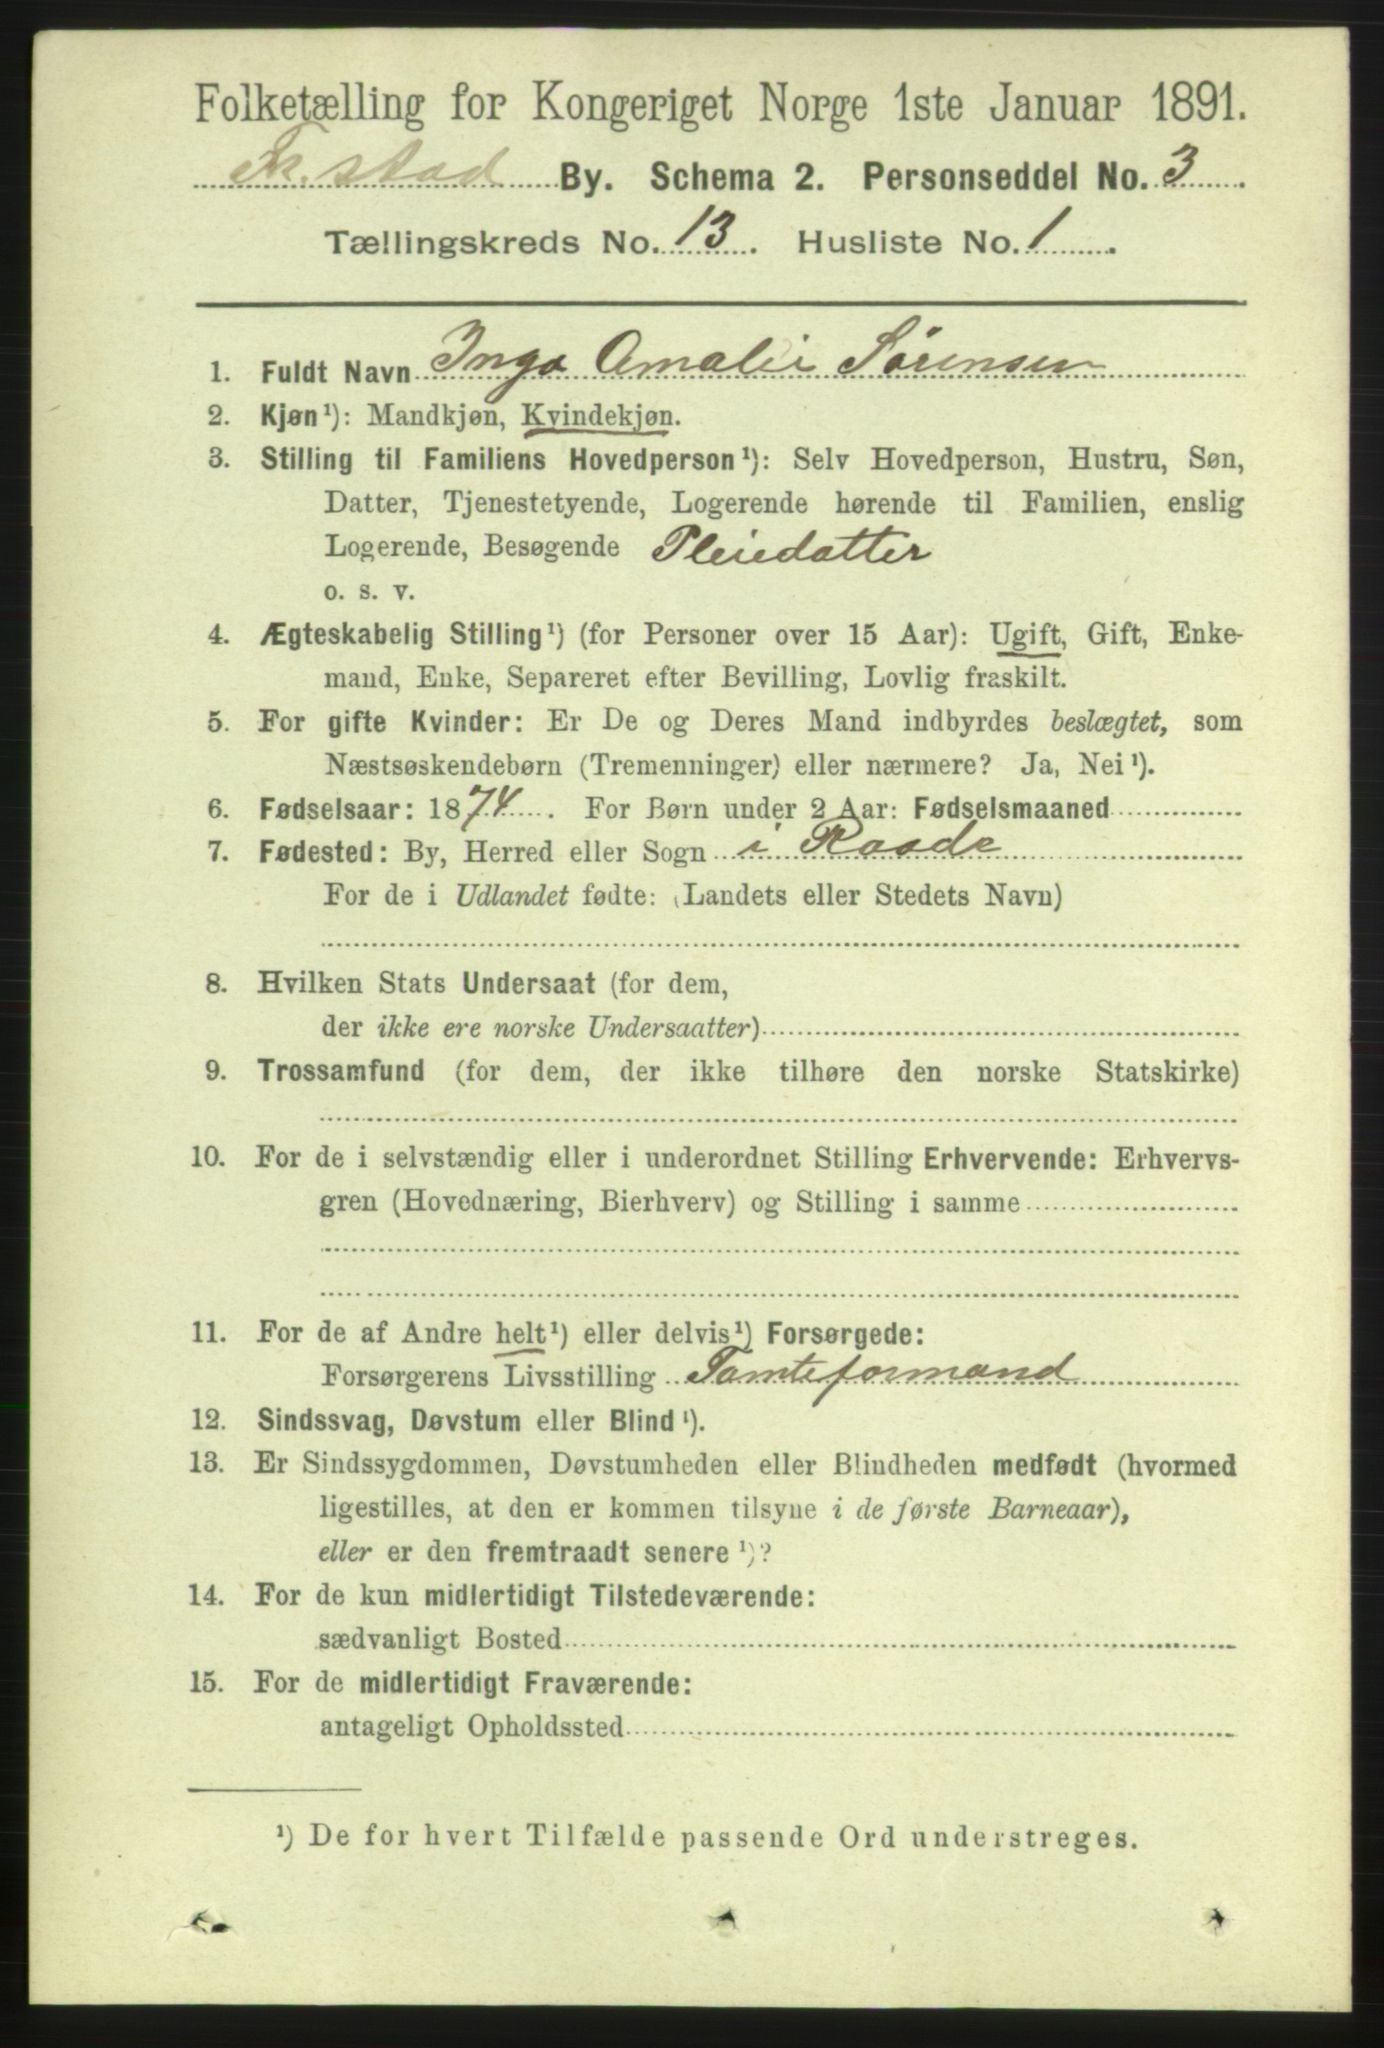 Folketælling for Kongeriget Norge 1ste Januar 1891.
Fr. stad By. Schema 2. Personseddel No. 3.
Tællingskreds No. 13. Husliste No. 1.
1. Fuldt Navn Inga Amalie Sørensen
2. Kjøn¹): Mandkjøn, Kvindekjøn.
3. Stilling til Familiens Hovedperson¹): Selv Hovedperson, Hustru, Søn,
Datter, Tjenestetyende, Logerende hørende til Familien, enslig
Logerende, Besøgende Pleiedatter
o. s. v.
4. Ægteskabelig Stilling¹) (for Personer over 15 Aar): Ugift, Gift, Enke-
mand, Enke, Separeret efter Bevilling, Lovlig fraskilt.
5. For gifte Kvinder: Er De og Deres Mand indbyrdes beslægtet, som
Næstsøskendebørn (Tremenninger) eller nærmere? Ja, Nei¹).
6. Fødselsaar: 1874. For Børn under 2 Aar: Fødselsmaaned
7. Fødested: By, Herred eller Sogn i Raade
For de i Udlandet fødte: (Landets eller Stedets Navn)
8. Hvilken Stats Undersaat (for dem,
der ikke ere norske Undersaatter)
9. Trossamfund (for dem, der ikke tilhøre den norske Statskirke)
10. For de i selvstændig eller i underordnet Stilling Erhvervende: Erhvervs-
gren (Hovednæring, Bierhverv) og Stilling i samme
11. For de af Andre helt¹) eller delvis¹) Forsørgede:
Forsørgerens Livsstilling Tomteformand
12. Sindssvag, Døvstum eller Blind¹).
13. Er Sindssygdommen, Døvstumheden eller Blindheden medfødt (hvormed
ligestilles, at den er kommen tilsyne i de første Barneaar),
eller er den fremtraadt senere¹)?
14. For de kun midlertidigt Tilstedeværende:
sædvanligt Bosted
15. For de midlertidigt Fraværende:
antageligt Opholdssted
¹) De for hvert Tilfælde passende Ord understreges.